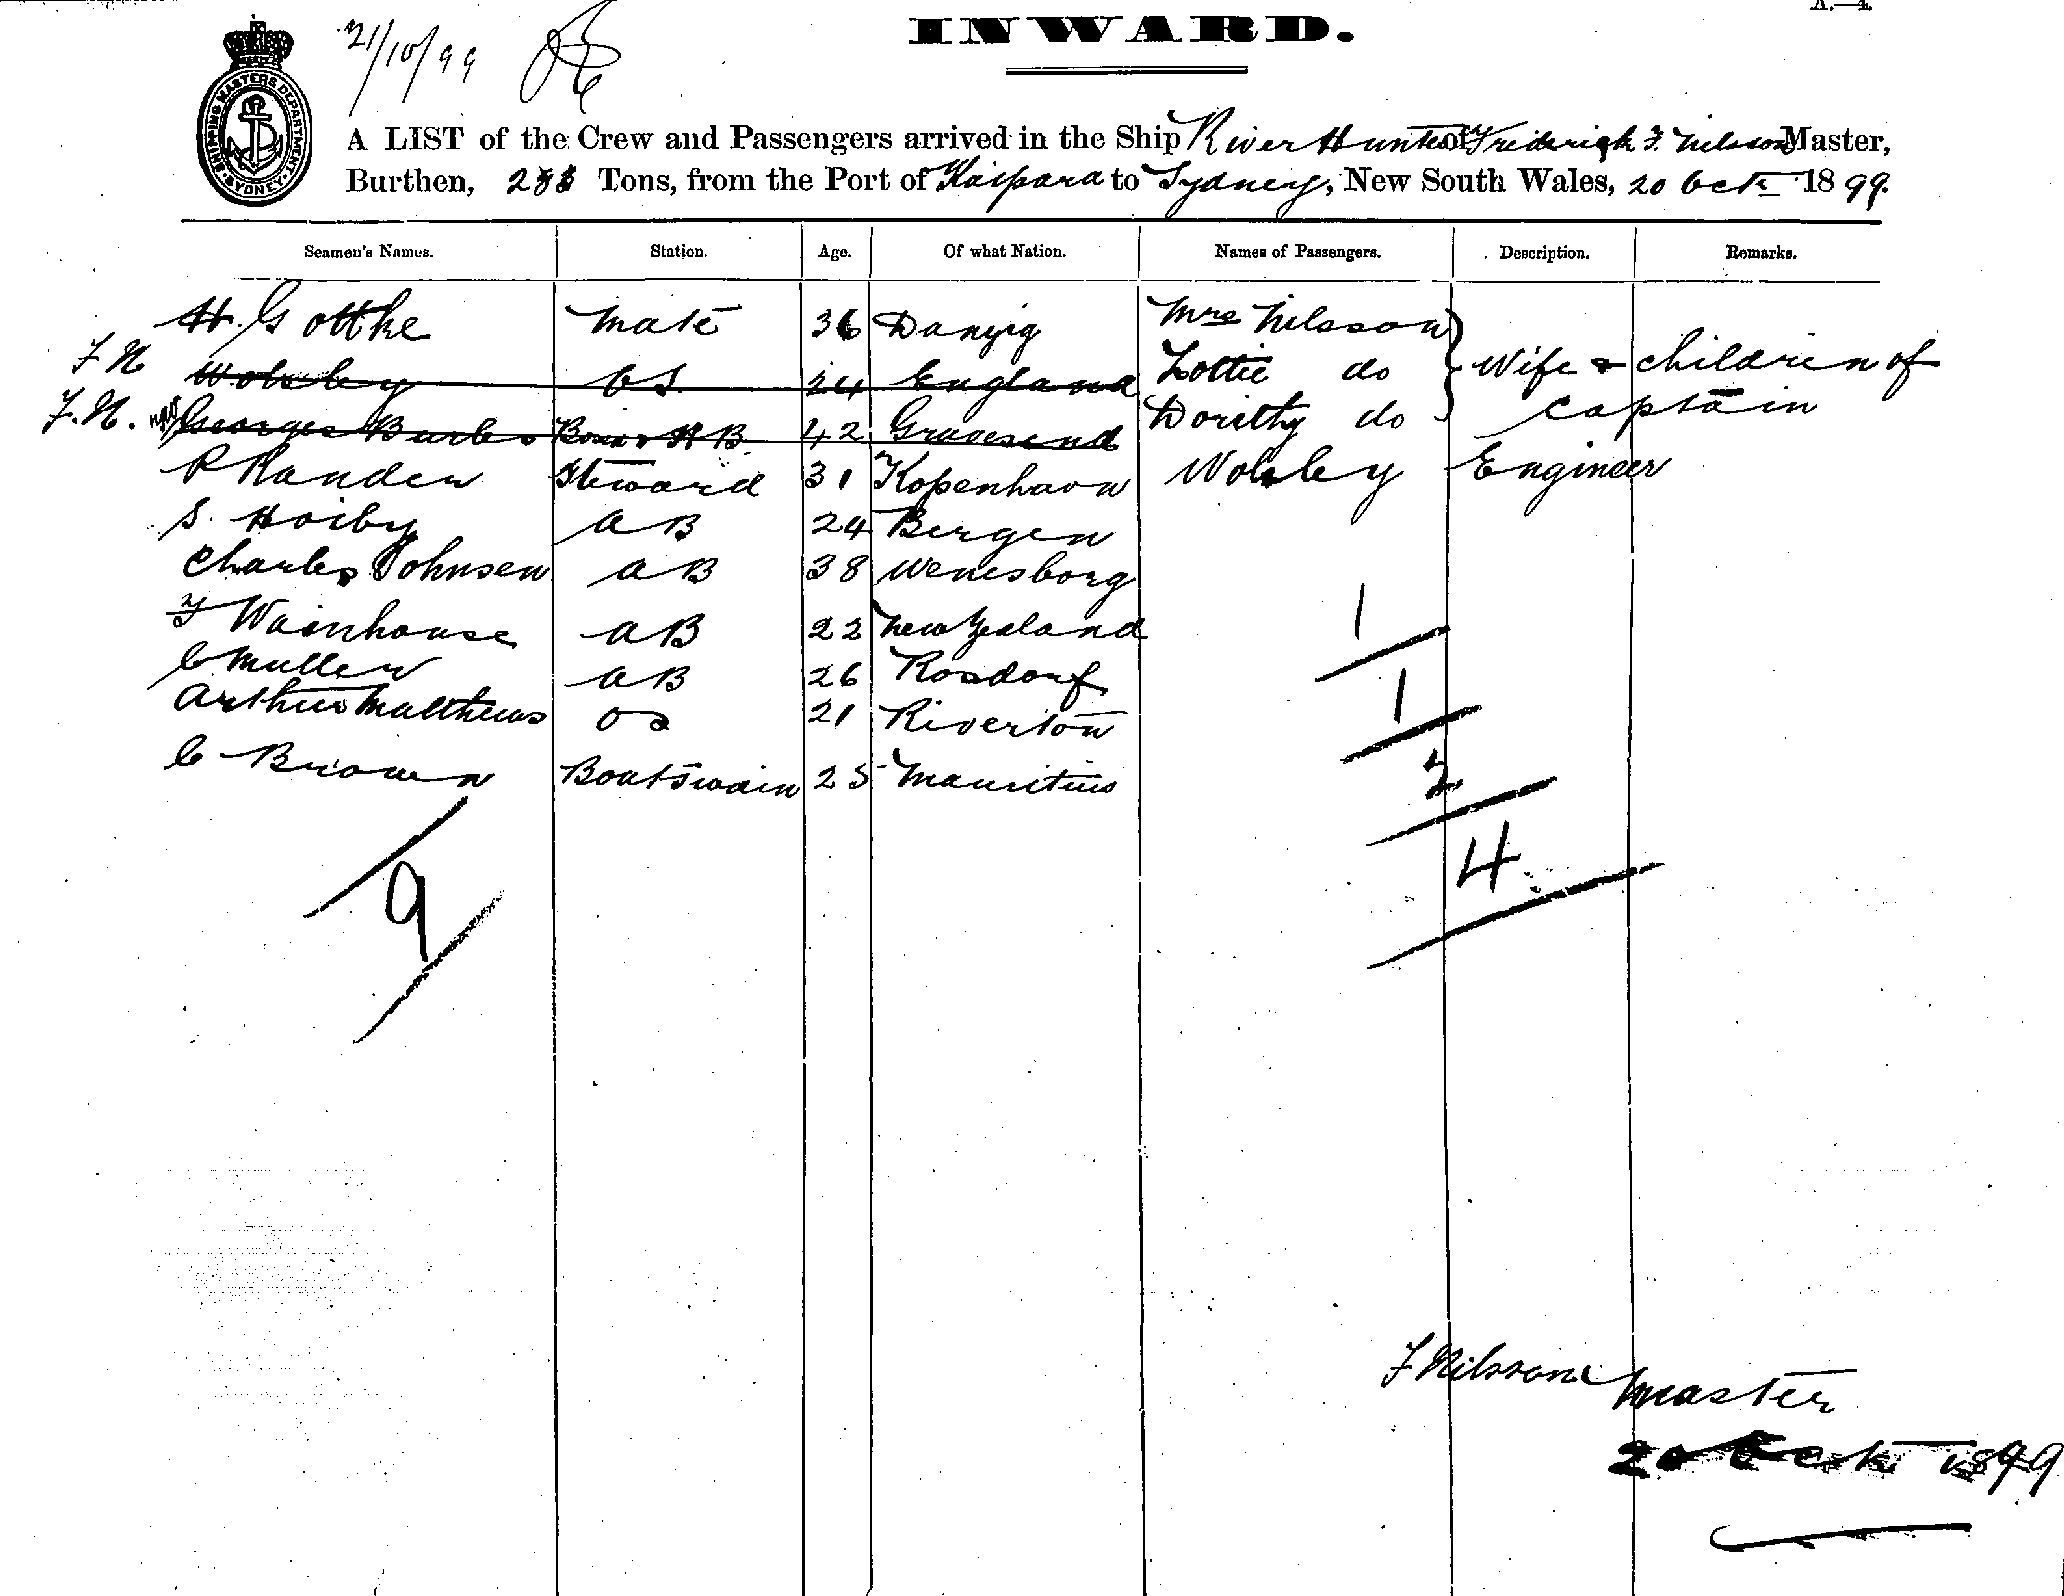 A.—4.
21/10/99
INWARD.
SHIPPING MASTERS DEPARTMENT SYDNEY
A LIST of the Crew and Passengers arrived in the Ship River Hunter of Frederick F. Nilsson Master,
Burthen, Tons, from the Port of Kaipara to Sydney, New South Wales, 20 Oct 1899.
Seamen's Names. Station. Age. Of what Nation. Names of Passengers. Description. Remarks.
H. Gottke Mate 36 Danzig Mrs Nilsson
F N Wolsley OS 24 England Lottie do Wife & children of
F. N. George Burls 42 Gravesend Dorithy do captain
P Randen Steward 31 Kopenhavn Wolsley Engineer
S. Hoiby AB 24 Bergen
Charles Johnsen AB 38 Wenesborg
F Wainhouse AB 22 New Zealand
C Muller AB 26 Rosdorf
Arthur Matthews OS 21 Riverton
C Brown Boatswain 25 Mauritius
1
1
2
4
9
F Nilsson Master
20 Oct 1899